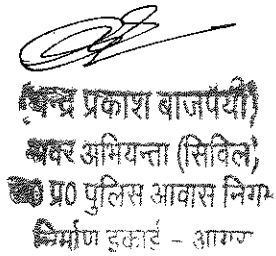 (चन्द्र प्रकाश बाजपेयी)
अवर अभियन्ता (सिविल)
उ0 प्र0 पुलिस आवास निगम
निर्माण इकाई – आगरा